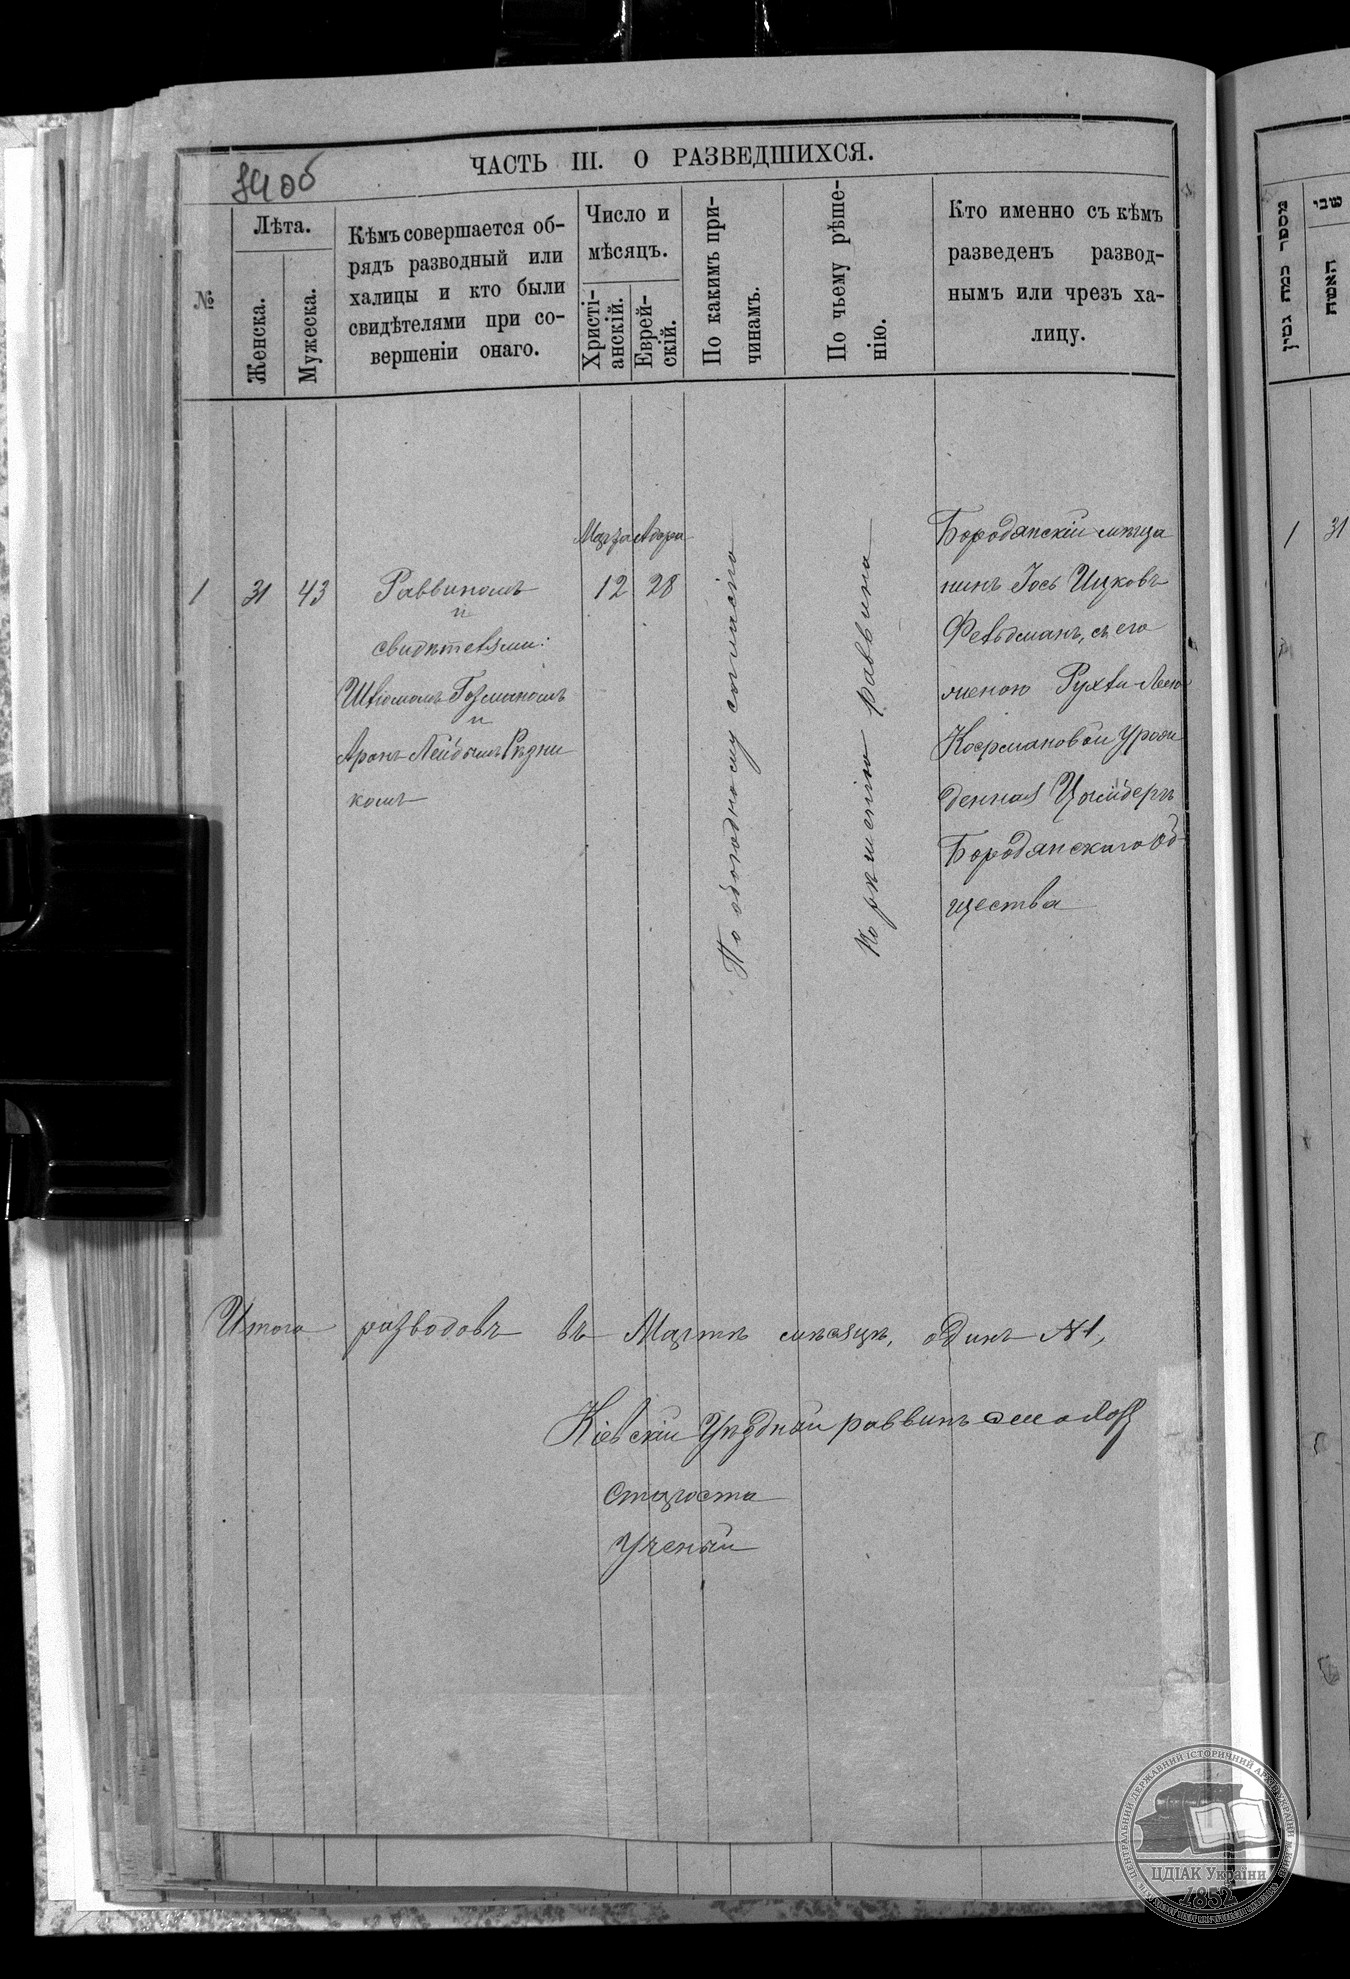 ЧАСТЬ III. О РАЗВЕДШИХСЯ.
№
Лѣта.
Женска.
Мужеска.
Кѣмъ совершается об-
рядъ разводный или
халицы и кто были
свидѣтелями при со-
вершеніи онаго.
Число и
мѣсяцъ.
Христі-
анскій.
Еврей-
скій.
По какимъ при-
чинамъ.
По чьему рѣше-
нію.
Кто именно съ кѣмъ
разведенъ развод-
нымъ или чрезъ ха-
лицу.
1
31
43
Раввиномъ
и
свидѣтелями:
Шлiомомъ Гозманомъ
и
Аронъ Лейбомъ Рѣзни
комъ
Марта
12
Адара
28
По обоюдному согласію
По рѣшенію раввина
Бородянскій мѣща
нинъ Іось Ицковъ
Фельдманъ, съ его
женою Рухли-Леею
урож
денная Цымберъ
Бородянскаго об-
щества
Итого разводовъ въ Мартѣ мѣсяцѣ, одинъ №1,
Кіевскій Уѣздный раввинъ
Староста
Ученый
מספר כמה גטין
שני
האשה
1
31
ЦЕНТРАЛЬНИЙ ДЕРЖАВНИЙ ІСТОРИЧНИЙ АРХІВ УКРАЇНИ М. КИЇВ
ЦДІАК України
1852